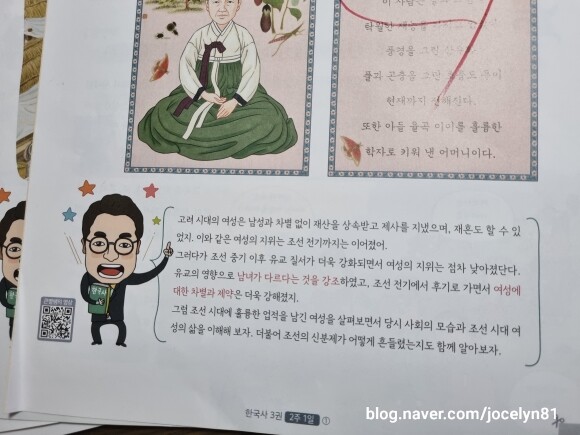 이 사람은
탁월한 재능을
풍경을 그린 산수화
풀과 곤충을 그린
현재까지 전해진다.
또한 아들 율곡 이이를 훌륭한
학자로 키워 낸 어머니이다.
고려 시대의 여성은 남성과 차별 없이 재산을 상속받고 제사를 지냈으며, 재혼도 할 수 있
었지. 이와 같은 여성의 지위는 조선 전기까지는 이어졌어.
그러다가 조선 중기 이후 유교 질서가 더욱 강화되면서 여성의 지위는 점차 낮아졌단다.
유교의 영향으로 남녀가 다르다는 것을 강조하였고, 조선 전기에서 후기로 가면서 여성에
대한 차별과 제약은 더욱 강해졌지.
그럼 조선 시대에 훌륭한 업적을 남긴 여성을 살펴보면서 당시 사회의 모습과 조선 시대 여
성의 삶을 이해해 보자. 더불어 조선의 신분제가 어떻게 흔들렸는지도 함께 알아보자.
큰별쌤의 영상
한국사
한국사 3권 2주 1일 ①
blog.naver.com/jocelyn81